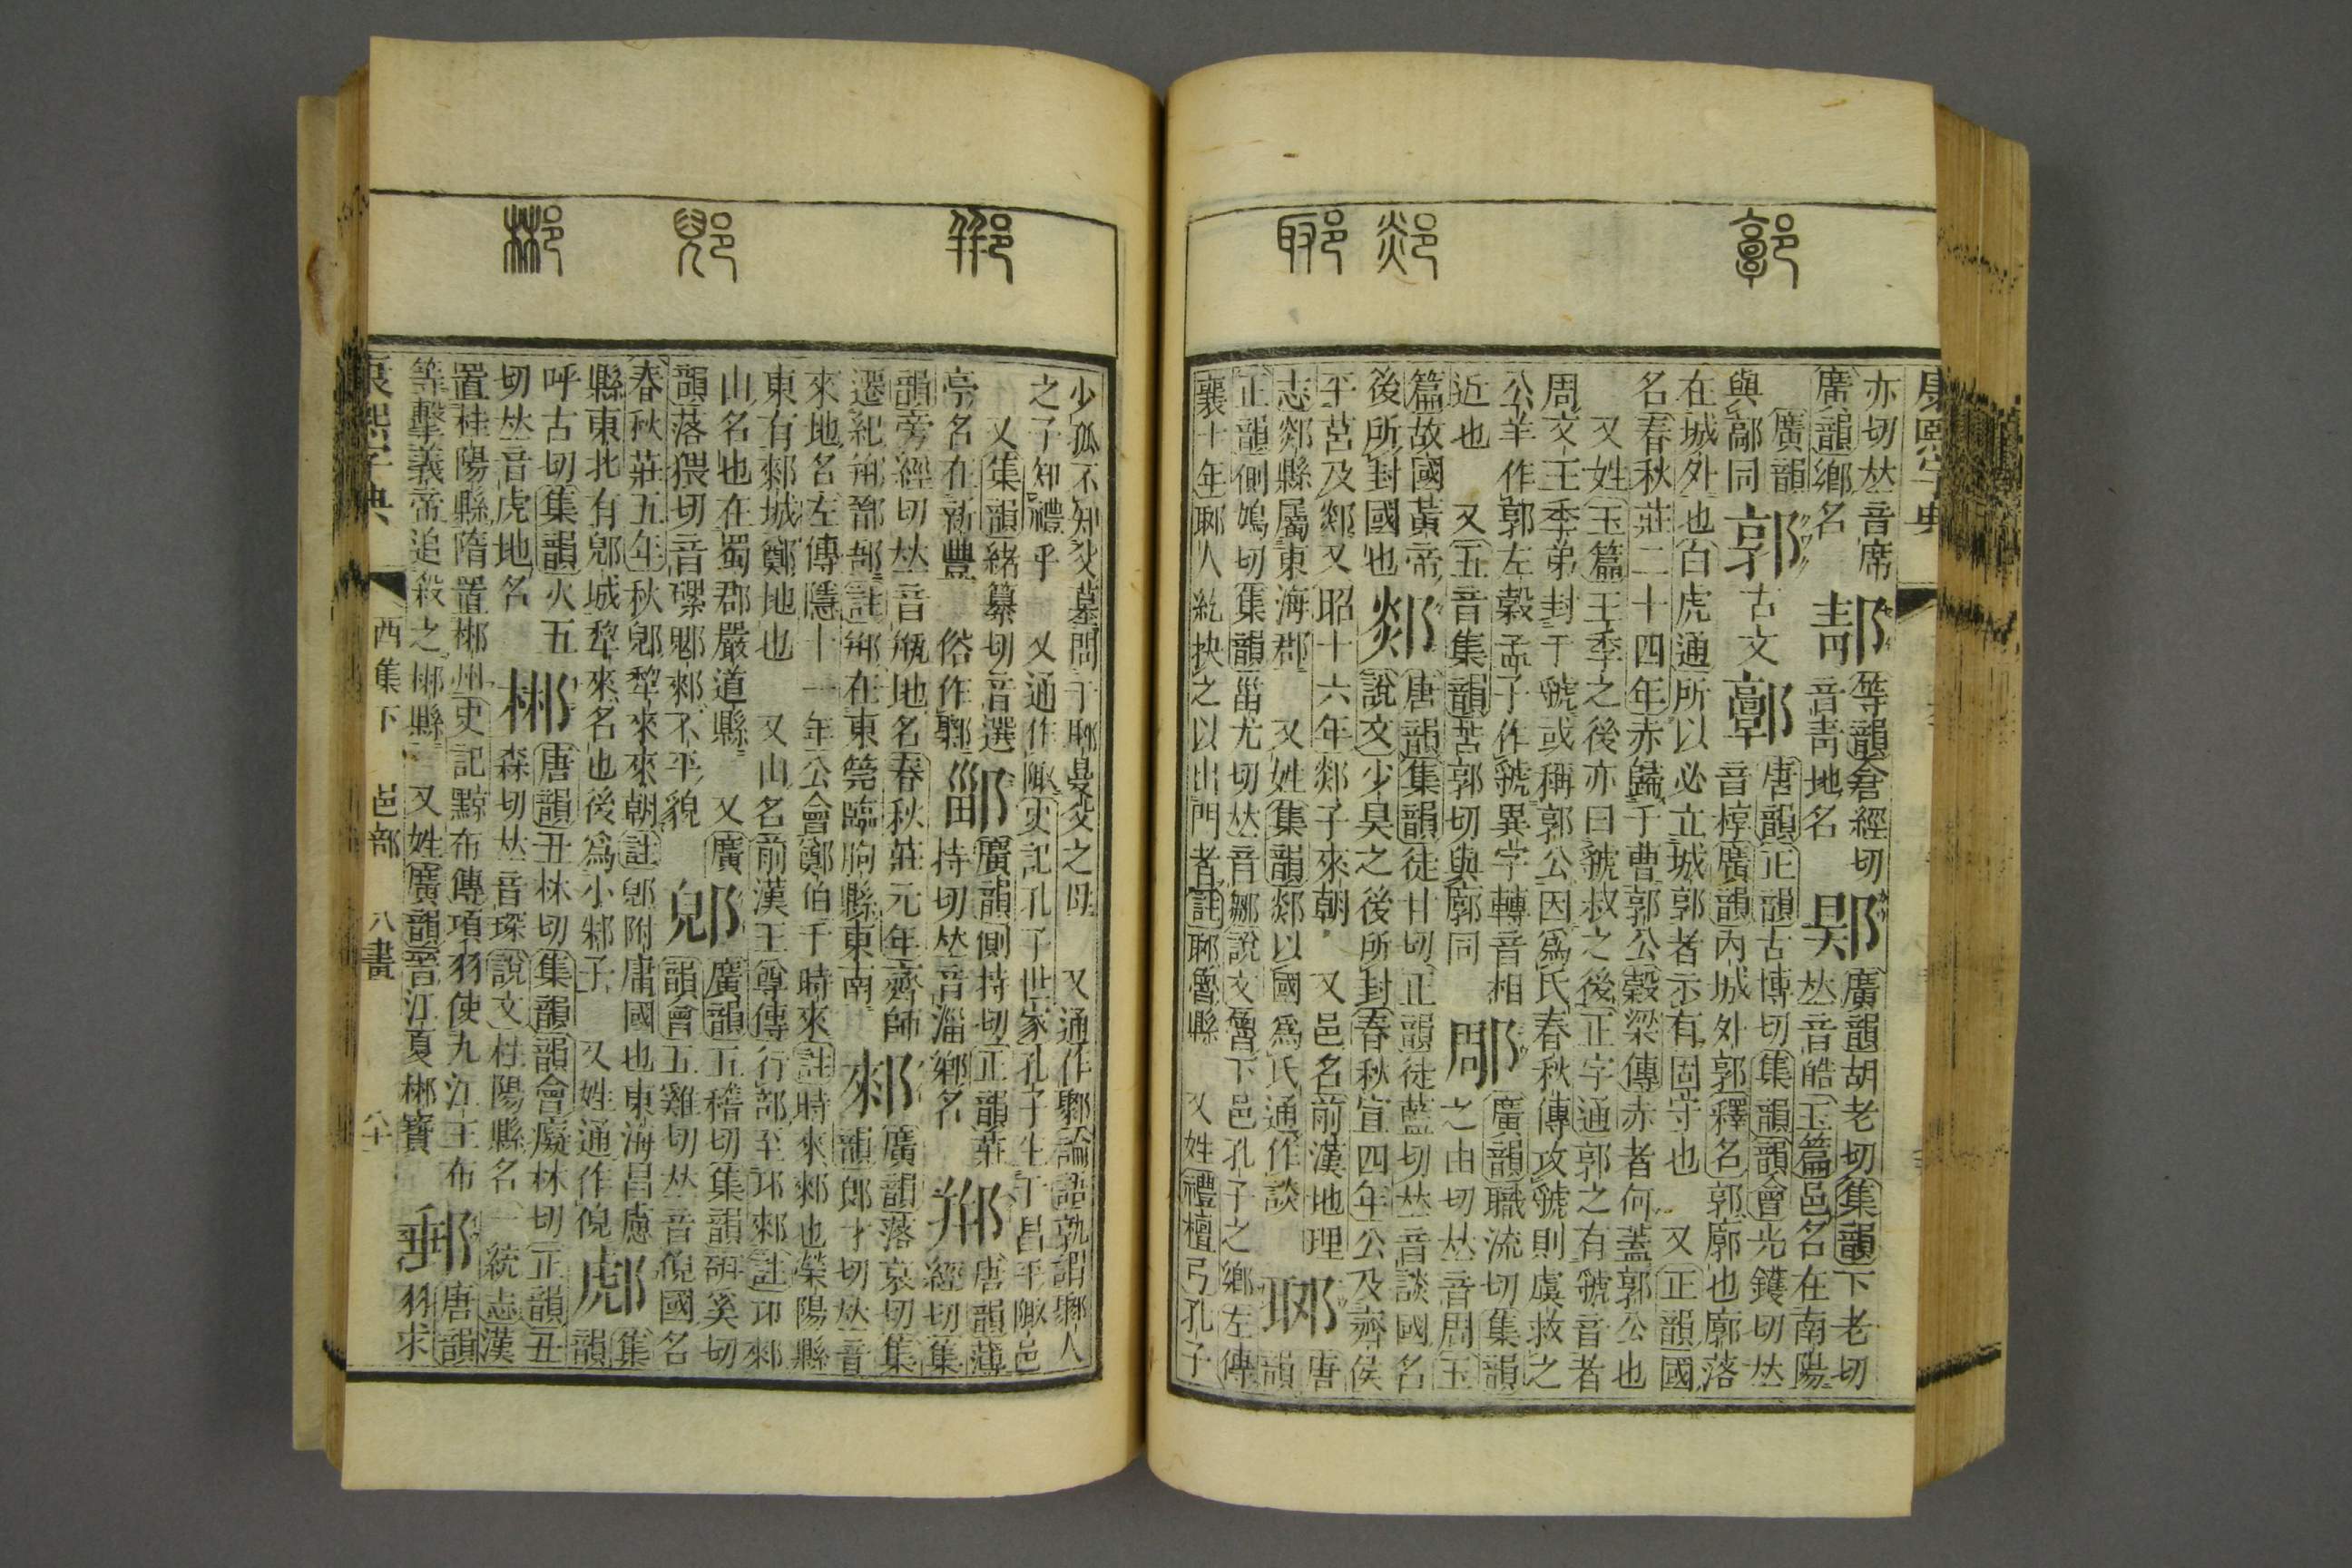 康熙字典
亦切𠀤音席
廣韻鄉名
郬
等韻倉經切
音靑地名
郹
廣韻胡老切集韻下老切
𠀤音皓玉篇邑名在南陽
廣韻
與鄗同
郭
古文𩫏
唐韻正韻古博切集韻韻會光鑊切𠀤
音椁廣韻內城外郭釋名郭廓也廓落
在城外也白虎通所以必立城郭者示有固守也 又正韻國
名春秋莊二十四年赤歸于曹郭公穀梁傳赤者何蓋郭公也
又姓玉篇王季之後亦曰虢叔之後正字通郭之有虢音者
周文王季弟封于虢或稱郭公因爲氏春秋傳攻虢則虞救之
公羊作郭左穀孟子作虢異字轉音相
近也 又五音集韻苦郭切與廓同
郮
廣韻職流切集韻
之由切𠀤音周玉
篇故國黃帝
後所封國也
郯
唐韻集韻徒甘切正韻徒藍切𠀤音談國名
說文少昊之後所封春秋宣四年公及齊侯
平莒及郯又昭十六年郯子來朝 又邑名前漢地理
志郯縣屬東海郡 又姓集韻郯以國爲氏通作談
郰
唐
韻
正韻側鳩切集韻甾尤切𠀤音鄒說文魯下邑孔子之鄉左傳
襄十年郰人紇抉之以出門者註郰魯縣 又姓禮檀弓孔子
少孤不知父墓問于郰曼父之母 又通作鄹論語孰謂鄹人
之子知禮乎 又通作陬史記孔子世家孔子生于昌平陬邑
又集韻緒纂切音選
亭名在新豐 俗作鄹
鄑
廣韻側持切正韻莊
持切𠀤音淄鄉名
郱
唐韻薄
經切集
韻旁經切𠀤音缾地名春秋莊元年齊師
遷紀郱鄑郚註郱在東莞臨朐縣東南
郲
廣韻落哀切集
韻郎才切𠀤音
來地名左傳隱十一年公會鄭伯于時來註時來郲也滎陽縣
東有郲城鄭地也 又山名前漢王尊傳行部至邛郲註邛郲
山名也在蜀郡嚴道縣 又廣
韻落猥切音磥䣀郲不平貌
郳
廣韻五稽切集韻硏奚切
韻會五雞切𠀤音倪國名
春秋莊五年秋郳犂來來朝註郳附庸國也東海昌慮
縣東北有郳城犂來名也後爲小邾子 又姓通作倪
䣜
集
韻
呼古切集韻火五
切𠀤音虎地名
郴
唐韻丑林切集韻韻會癡林切正韻丑
森切𠀤音琛說文桂陽縣名一統志漢
置桂陽縣隋置郴州史記黥布傳項羽使九江王布
等擊義帝追殺之郴縣 又姓廣韻晉江夏郴寶
郵
唐韻
羽求
康熙字典
酉集下 邑部 八畫